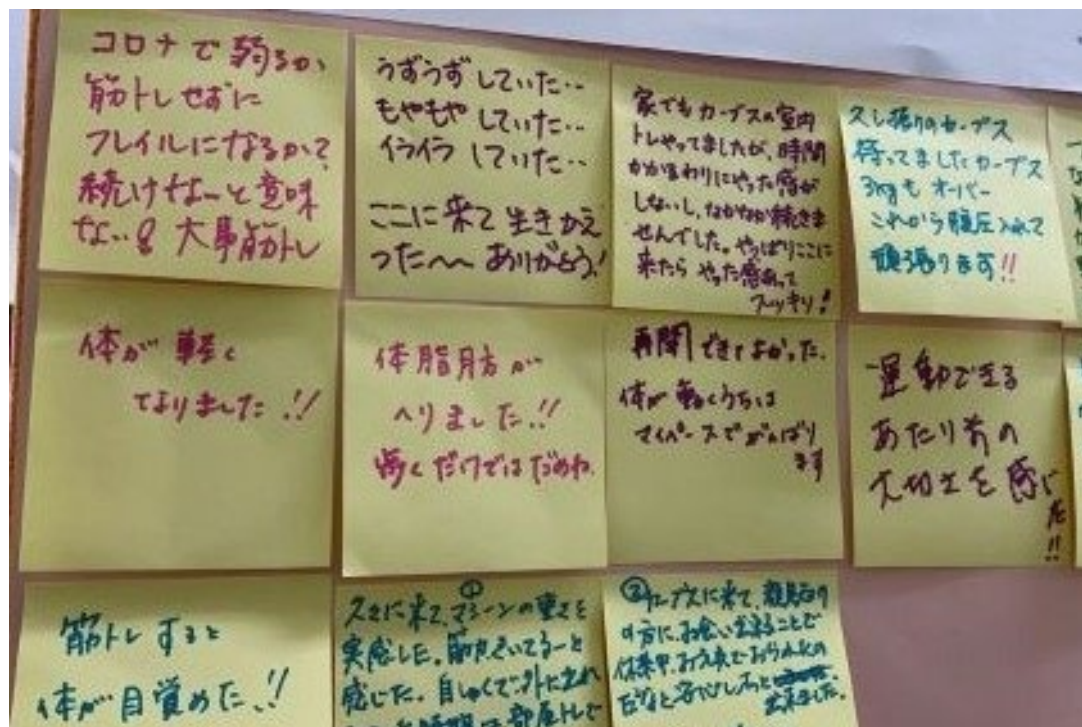 コロナで弱るか、
筋トレせずに
フレイルになるか?
続けなーと意味
ない 大事筋トレ
うずうずしていた…
もやもやしていた…
イライラしていた…
ここに来て生きかえ
った〜〜ありがとう!
家でもカーブスの室内
トレやってましたが、時間
かかるわりにやった感が
しないし、なかなか続きま
せんでした。やっぱりここに
来たらやった感あって
スッキリ!
久し振りのカーブス
待ってましたカーブス
3kgもオーバー
これから腹圧入れて
頑張ります!!
体が軽く
なりました!!
体脂肪が
へりました!!
歩くだけではだめね。
再開できてよかった。
体が動くうちは
マイペースでがんばり
ます
運動できる
あたり前の
大切さを感じ
た!!
筋トレすると
体が目覚めた!!
①
久々に来て、マシーンの重さを
実感した。筋力きいてるーと
感じた。
②カーブスに来て、
の方にお会い出来ることで
休業中、
出来ました。